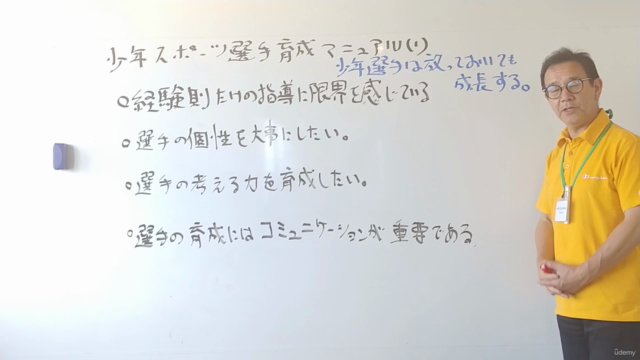 少年スポーツ選手育成マニュアル(1)
少年選手は放っておいても
成長する。
○経験則だけの指導に限界を感じている
○選手の個性を大事にしたい。
○選手の考える力を育成したい。
○選手の育成にはコミュニケーションが重要である
ûdemy